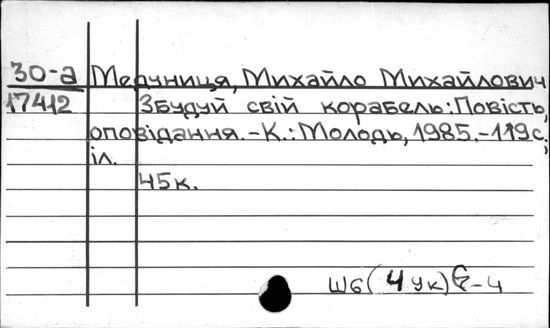 30-а Медуниця, Михайло Михайлович
17412 Збудуй свій корабель: Повість,
оповідання.-К.: Молодь, 1985.-119с.,
іл.
45к.
Ш6(4Ук)6-4